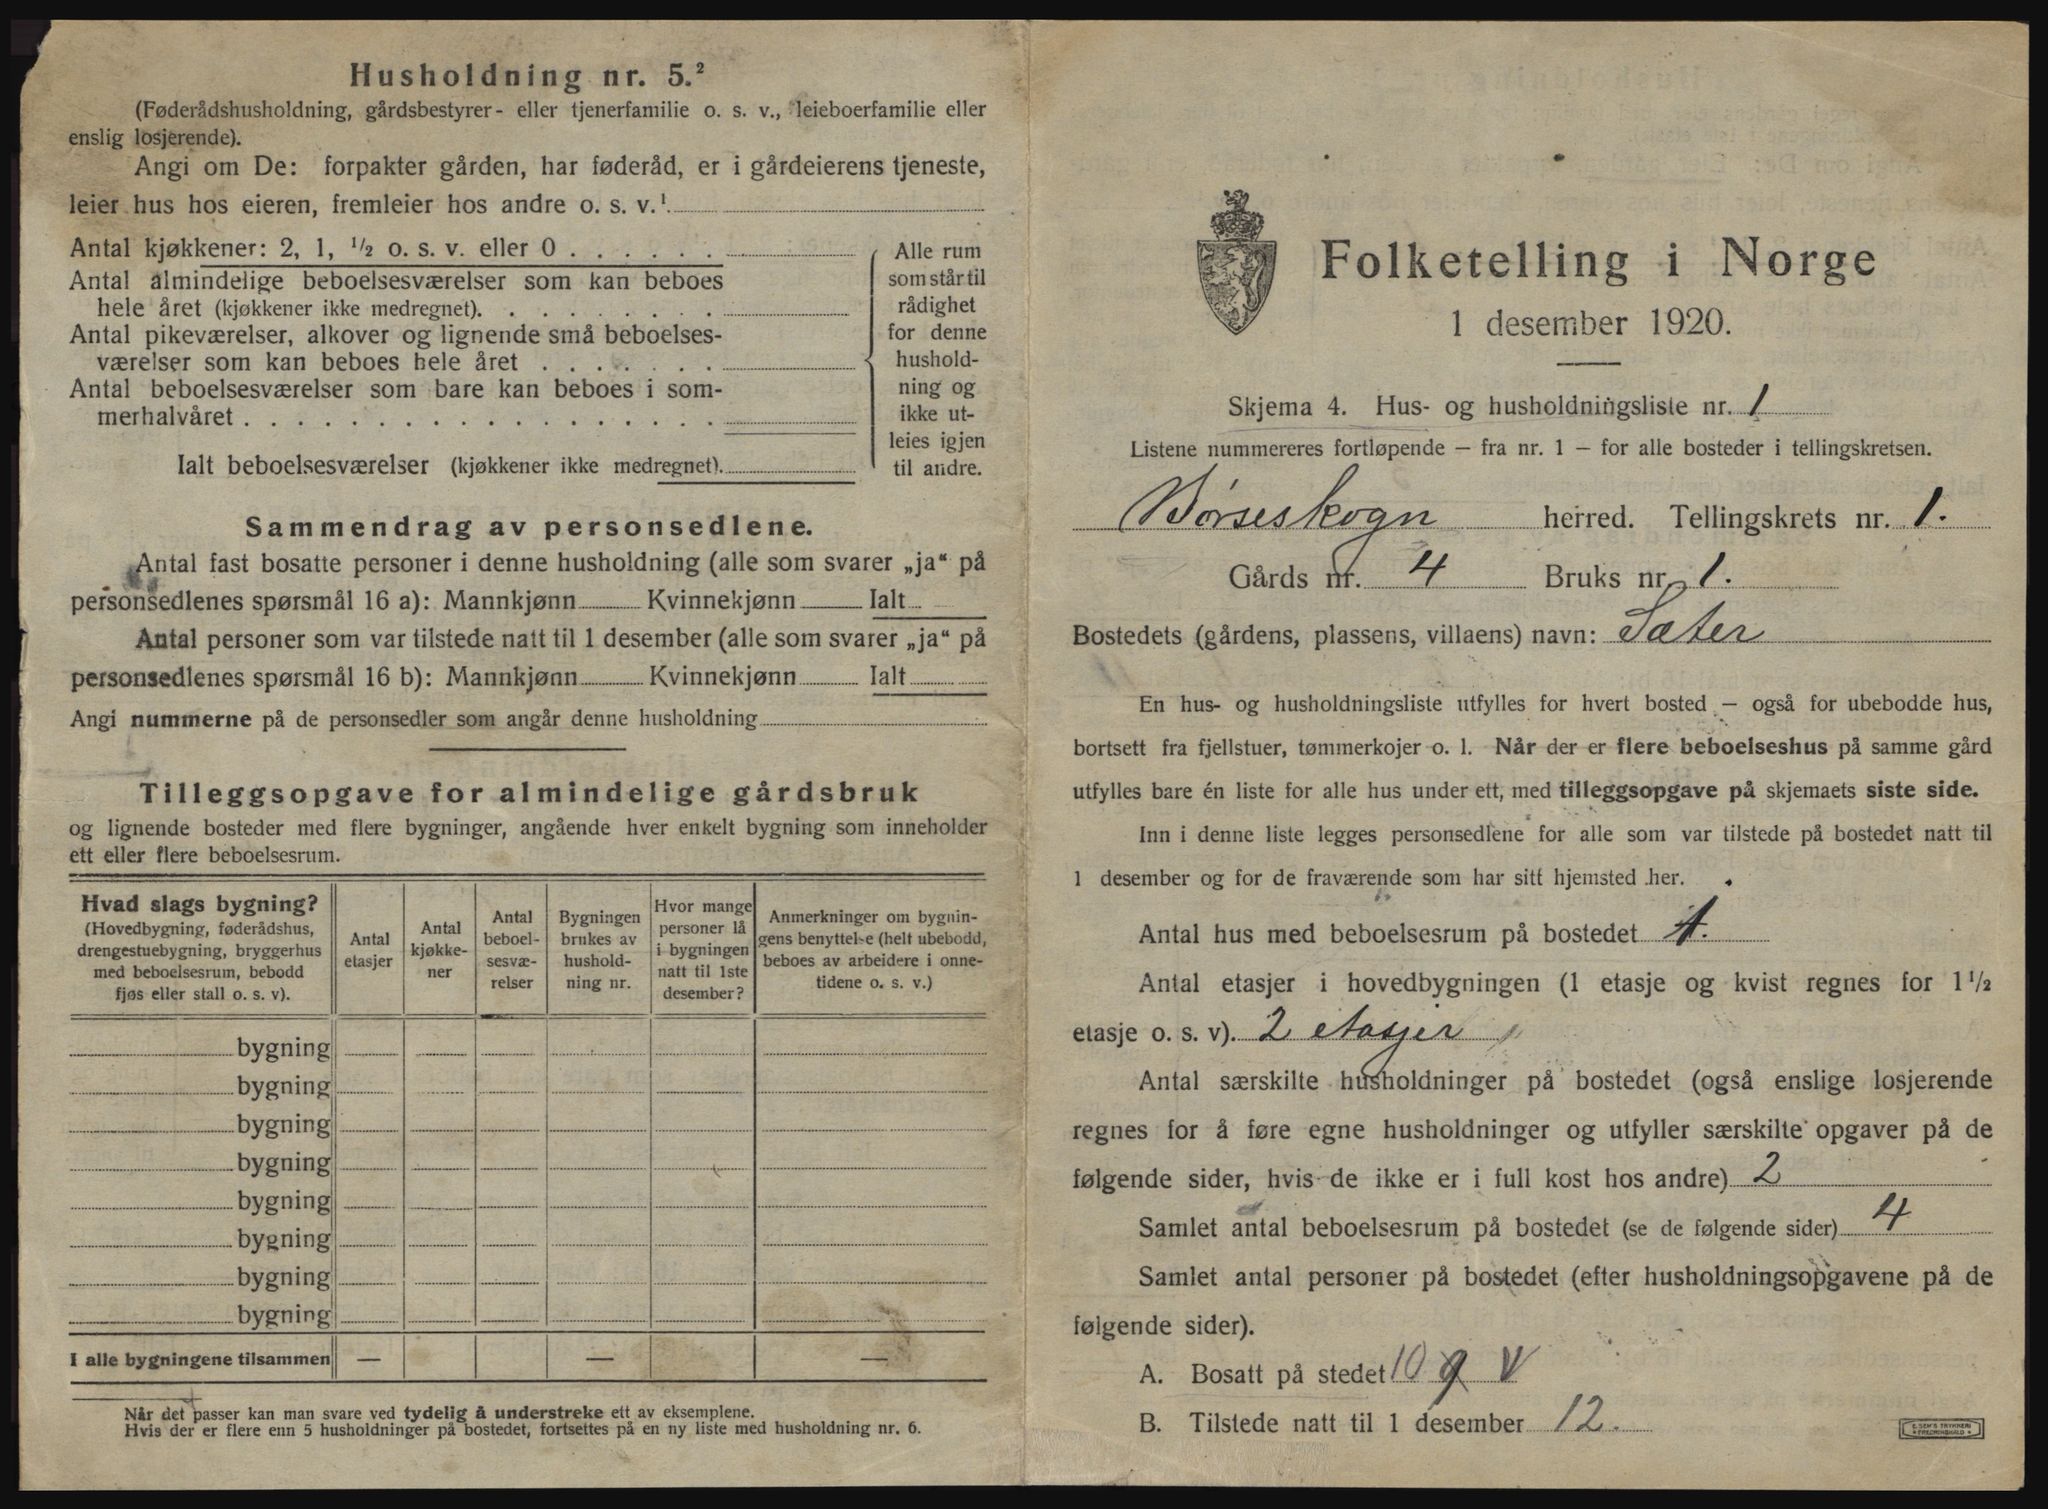 Husholdning nr. 5.²
(Føderådshusholdning, gårdsbestyrer- eller tjenerfamilie o. s. v., leieboerfamilie eller
enslig losjerende).
Angi om De: forpakter gården, har føderåd, er i gårdeierens tjeneste,
leier hus hos eieren, fremleier hos andre o. s. v.¹
Antal kjøkkener: 2, 1, ½ o. s. v. eller 0 . . . . . .
Antal almindelige beboelsesværelser som kan beboes
hele året (kjøkkener ikke medregnet). . . . . . . . .
Antal pikeværelser, alkover og lignende små beboelses-
værelser som kan beboes hele året . . . . . . .
Antal beboelsesværelser som bare kan beboes i som-
merhalvåret . . . . . . . . . . . . . . . . . .
Ialt beboelsesværelser (kjøkkener ikke medregnet).
Alle rum
som står til
rådighet
for denne
hushold-
ning og
ikke ut-
leies igjen
til andre.
Sammendrag av personsedlene.
Antal fast bosatte personer i denne husholdning (alle som svarer „ja“ på
personsedlenes spørsmål 16 a): Mannkjønn Kvinnekjønn Ialt
Antal personer som var tilstede natt til 1 desember (alle som svarer „ja“ på
personsedlenes spørsmål 16 b): Mannkjønn Kvinnekjønn Ialt
Angi nummerne på de personsedler som angår denne husholdning
Tilleggsopgave for almindelige gårdsbruk
og lignende bosteder med flere bygninger, angående hver enkelt bygning som inneholder
ett eller flere beboelsesrum.
Hvad slags bygning?
(Hovedbygning, føderådshus,
drengestuebygning, bryggerhus
med beboelsesrum, bebodd
fjøs eller stall o. s. v).
Antal
etasjer
Antal
kjøkke-
ner
Antal
beboel-
sesvæ-
relser
Bygningen
brukes av
hushold-
ning nr.
Hvor mange
personer lå
i bygningen
natt til 1ste
desember?
Anmerkninger om bygnin-
gens benyttelse (helt ubebodd,
beboes av arbeidere i onne-
tidene o. s. v.)
bygning
bygning
bygning
bygning
bygning
bygning
bygning
bygning
I alle bygningene tilsammen — — —
Når det passer kan man svare ved tydelig å understreke ett av eksemplene.
Hvis der er flere enn 5 husholdninger på bostedet, fortsettes på en ny liste med husholdning nr. 6.
Folketelling i Norge
1 desember 1920.
Skjema 4. Hus- og husholdningsliste nr. 1
Listene nummereres fortløpende — fra nr. 1 — for alle bosteder i tellingskretsen.
Børseskogn herred. Tellingskrets nr. 1.
Gårds nr. 4 Bruks nr. 1.
Bostedets (gårdens, plassens, villaens) navn: Sæter
En hus- og husholdningsliste utfylles for hvert bosted — også for ubebodde hus,
bortsett fra fjellstuer, tømmerkojer o. l. Når der er flere beboelseshus på samme gård
utfylles bare én liste for alle hus under ett, med tilleggsopgave på skjemaets siste side.
Inn i denne liste legges personsedlene for alle som var tilstede på bostedet natt til
1 desember og for de fraværende som har sitt hjemsted her.
Antal hus med beboelsesrum på bostedet 1.
Antal etasjer i hovedbygningen (1 etasje og kvist regnes for 1½
etasje o. s. v). 2 etasjer
Antal særskilte husholdninger på bostedet (også enslige losjerende
regnes for å føre egne husholdninger og utfyller særskilte opgaver på de
følgende sider, hvis de ikke er i full kost hos andre) 2
Samlet antal beboelsesrum på bostedet (se de følgende sider) 4
Samlet antal personer på bostedet (efter husholdningsopgavene på de
følgende sider).
A. Bosatt på stedet 10 9 V
B. Tilstede natt til 1 desember 12.